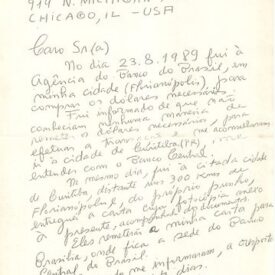 919 N. MICHIGAN
CHICAGO, IL - USA
Caro Sr(a)
No dia 23.8.1989 fui à
Agência do Banco do Brasil, em
minha cidade (Florianópolis) para
comprar os dólares necessários.
Fui informado de que não
conheciam nenhuma maneira de
remeter os dólares necessários, para
efetuar a e me aconselharam
ir à cidade de Curitiba (PR),
entender com o Banco Central.
No mesmo dia, fui à citada cidade
de Curitiba, distante uns 300 Kms de
Florianópolis e, do próprio punho,
entreguei a carta cuja fotocópia anexo
à presente, acompanhada de documentos.
Eles remeteram a minha carta para
Brasília, onde fica a sede do Banco
Central do Brasil.
me informaram, a resposta
dias